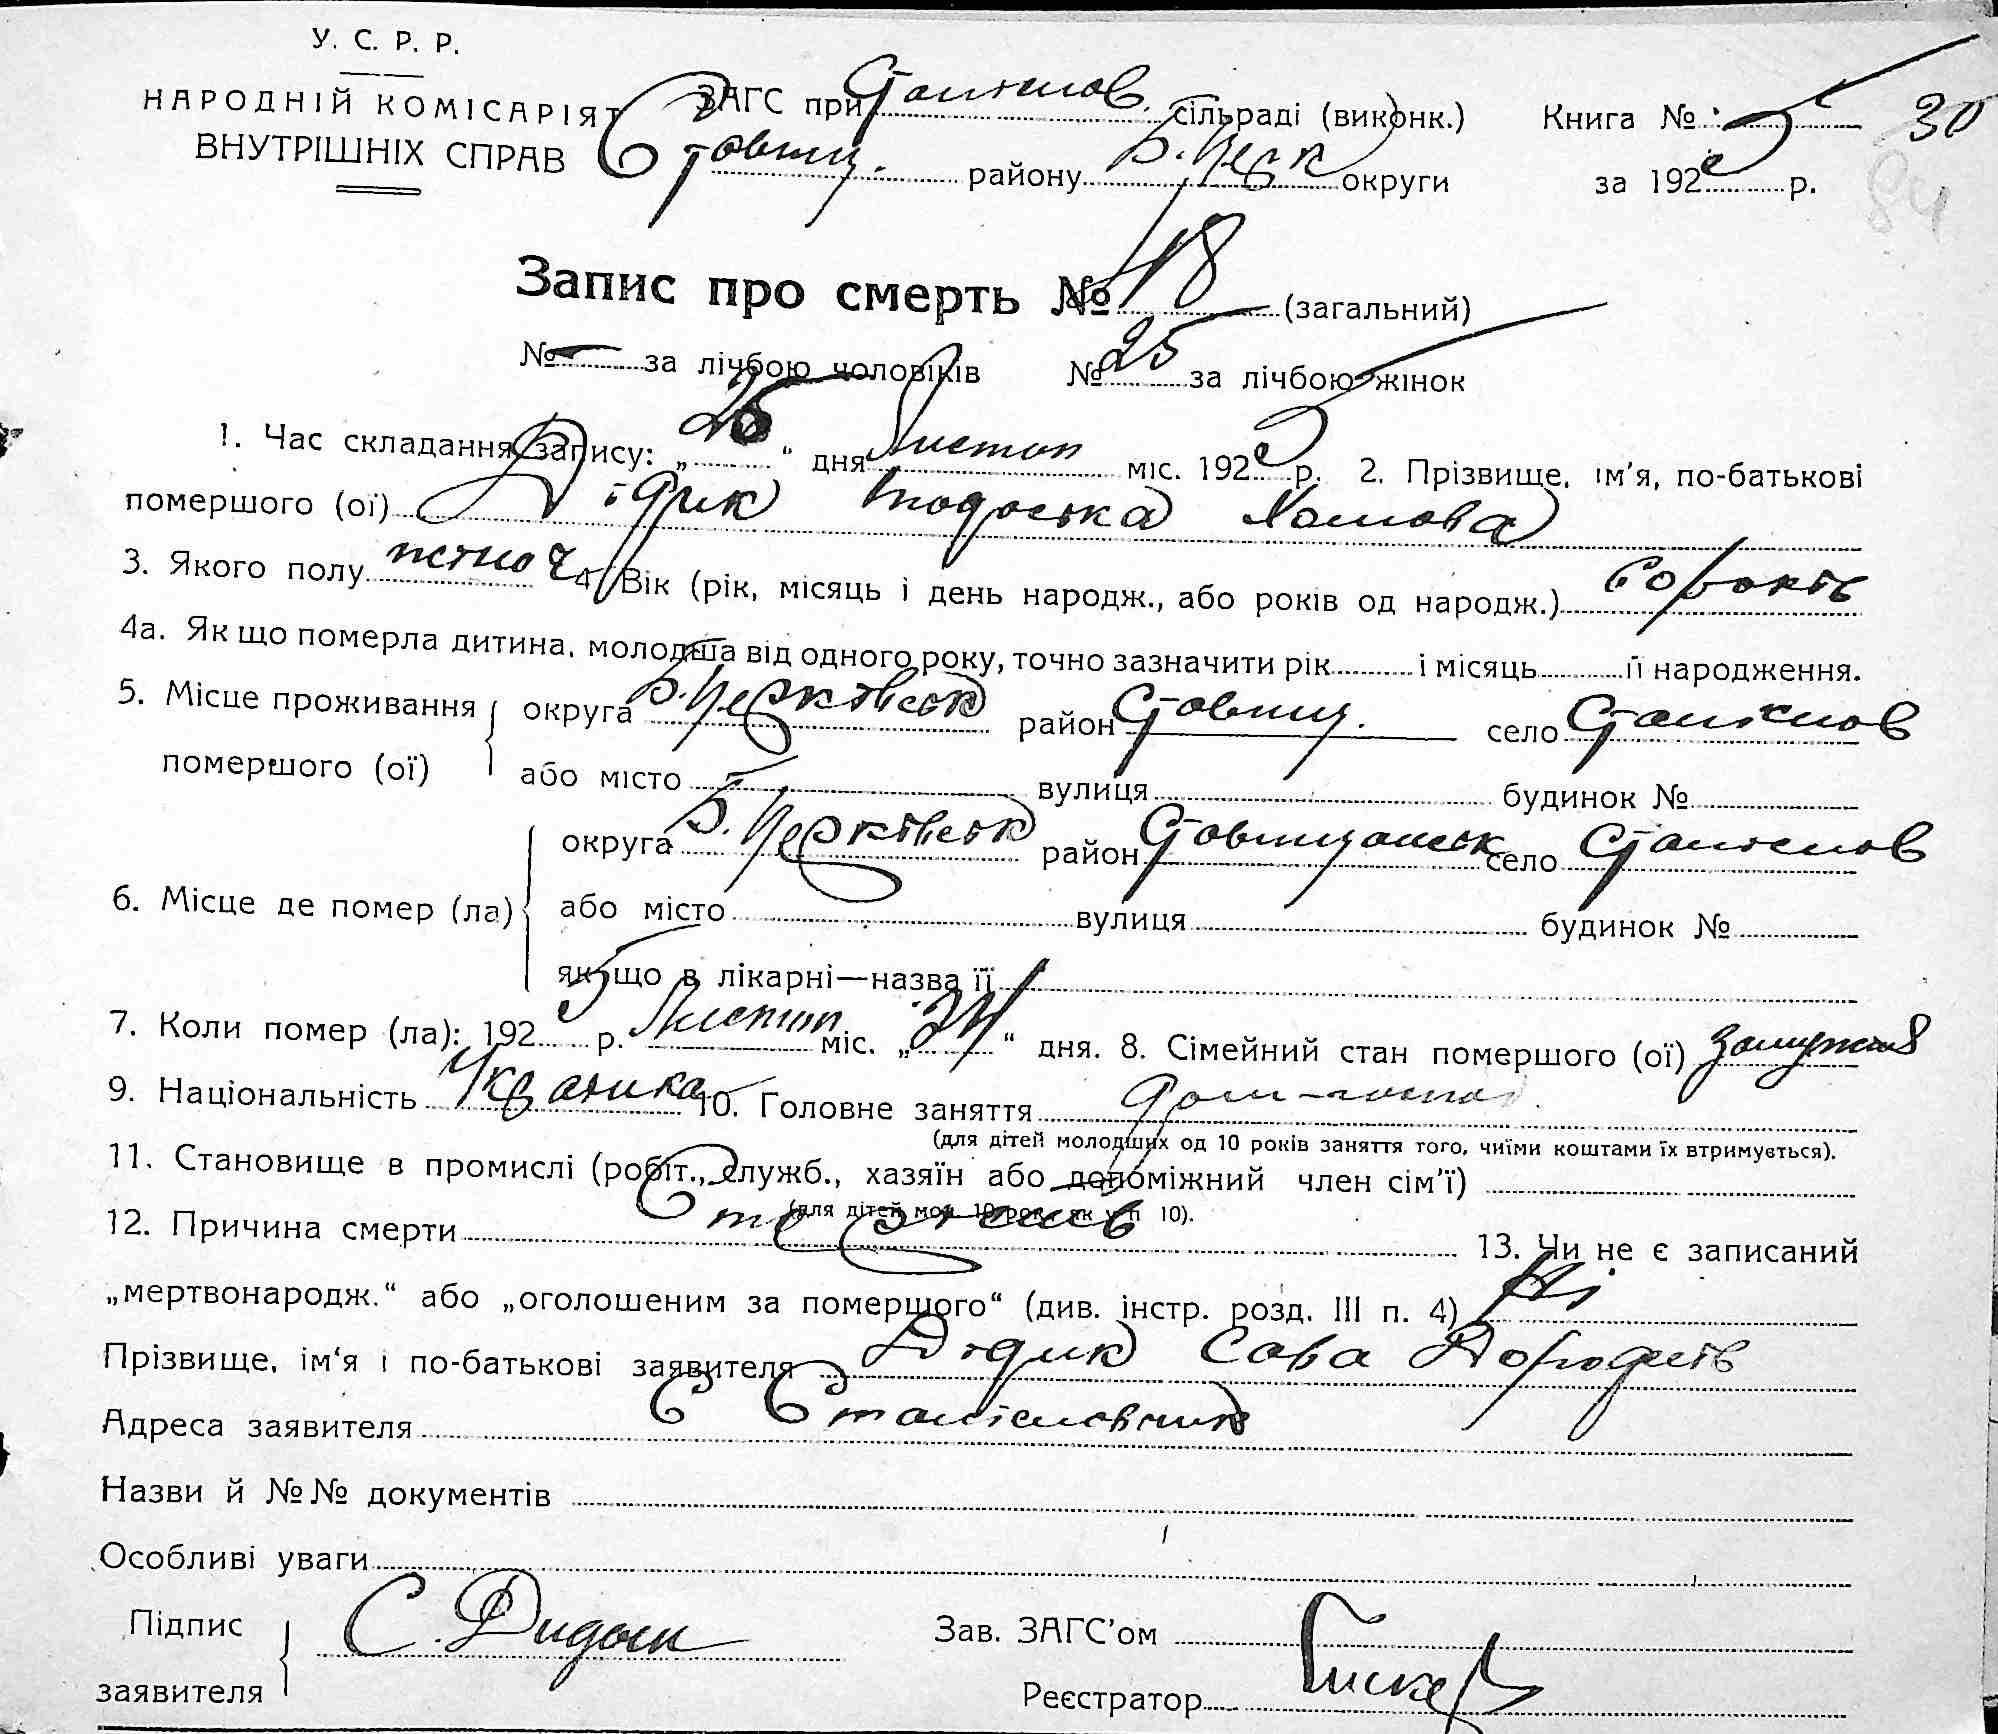 У. С. Р. Р.
НАРОДНІЙ КОМІСАРІЯТ
ВНУТРІШНІХ СПРАВ
ЗАГС при Станіслов. сільраді (виконк.) Книга № 5 30
Ставищ. району Б. Церк округи за 1925 р. 84
Запис про смерть № 48 (загальний)
№ — за лічбою чоловіків № 25 за лічбою жінок
1. Час складання запису: „ 25 “ дня Листоп міс. 1925 р. 2. Прізвище, ім'я, по-батькові
помершого (ої) Дідик Тодоська Хомова
3. Якого полу жіноч 4. Вік (рік, місяць і день народж., або років од народж.)
4а. Як що померла дитина, молодша від одного року, точно зазначити рік і місяць її народження.
5. Місце проживання помершого (ої) округа Б. Церківськ район Ставищ. село Станіслов
або місто вулиця будинок №
6. Місце де помер (ла) округа Б. Церківськ район Ставищанськ село Станіслов
або місто вулиця будинок №
якщо в лікарні—назва її
7. Коли помер (ла): 1925 р. Листоп міс. „ 24 “ дня. 8. Сімейний стан помершого (ої) Замужня
9. Національність Українка 10. Головне заняття дом-господ.
(для дітей молодших од 10 років заняття того, чиїми коштами їх втримується).
11. Становище в промислі (робіт., служб., хазяїн або допоміжний член сім'ї)
(для дітей мол. 10 рок. як у п 10).
12. Причина смерти 13. Чи не є записаний
„мертвонародж.“ або „оголошеним за помершого“ (див. інстр. розд. III п. 4) Ні
Прізвище, ім'я і по-батькові заявителя Дідик Сава
Адреса заявителя С Станіславчик
Назви й №№ документів
Особливі уваги
Підпис заявителя С. Дидык Зав. ЗАГС'ом
Реєстратор